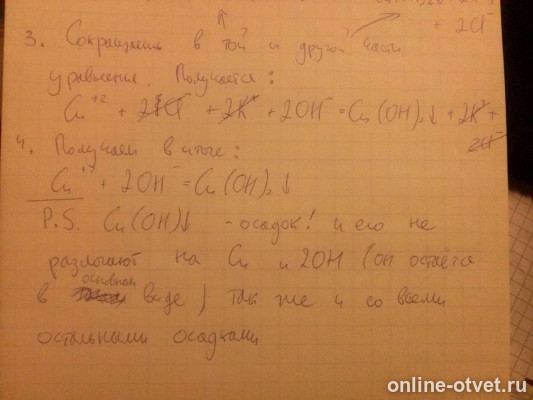 + 2Cl⁻
3. Сокращаешь в той и другой части
уравнения. Получается:
Cu⁺² + 2Cl⁻ + 2K⁺ + 2OH⁻ = Cu(OH)₂↓ + 2K⁺ +
2Cl⁻
4. Получаем в итоге:
Cu⁺² + 2OH⁻ = Cu(OH)₂↓
P.S. Cu(OH)↓ - осадок! и его не
разлагают на Cu и 2OH (он остаётся
основном
в виде) так же и со всеми
остальными осадками
online-otvet.ru